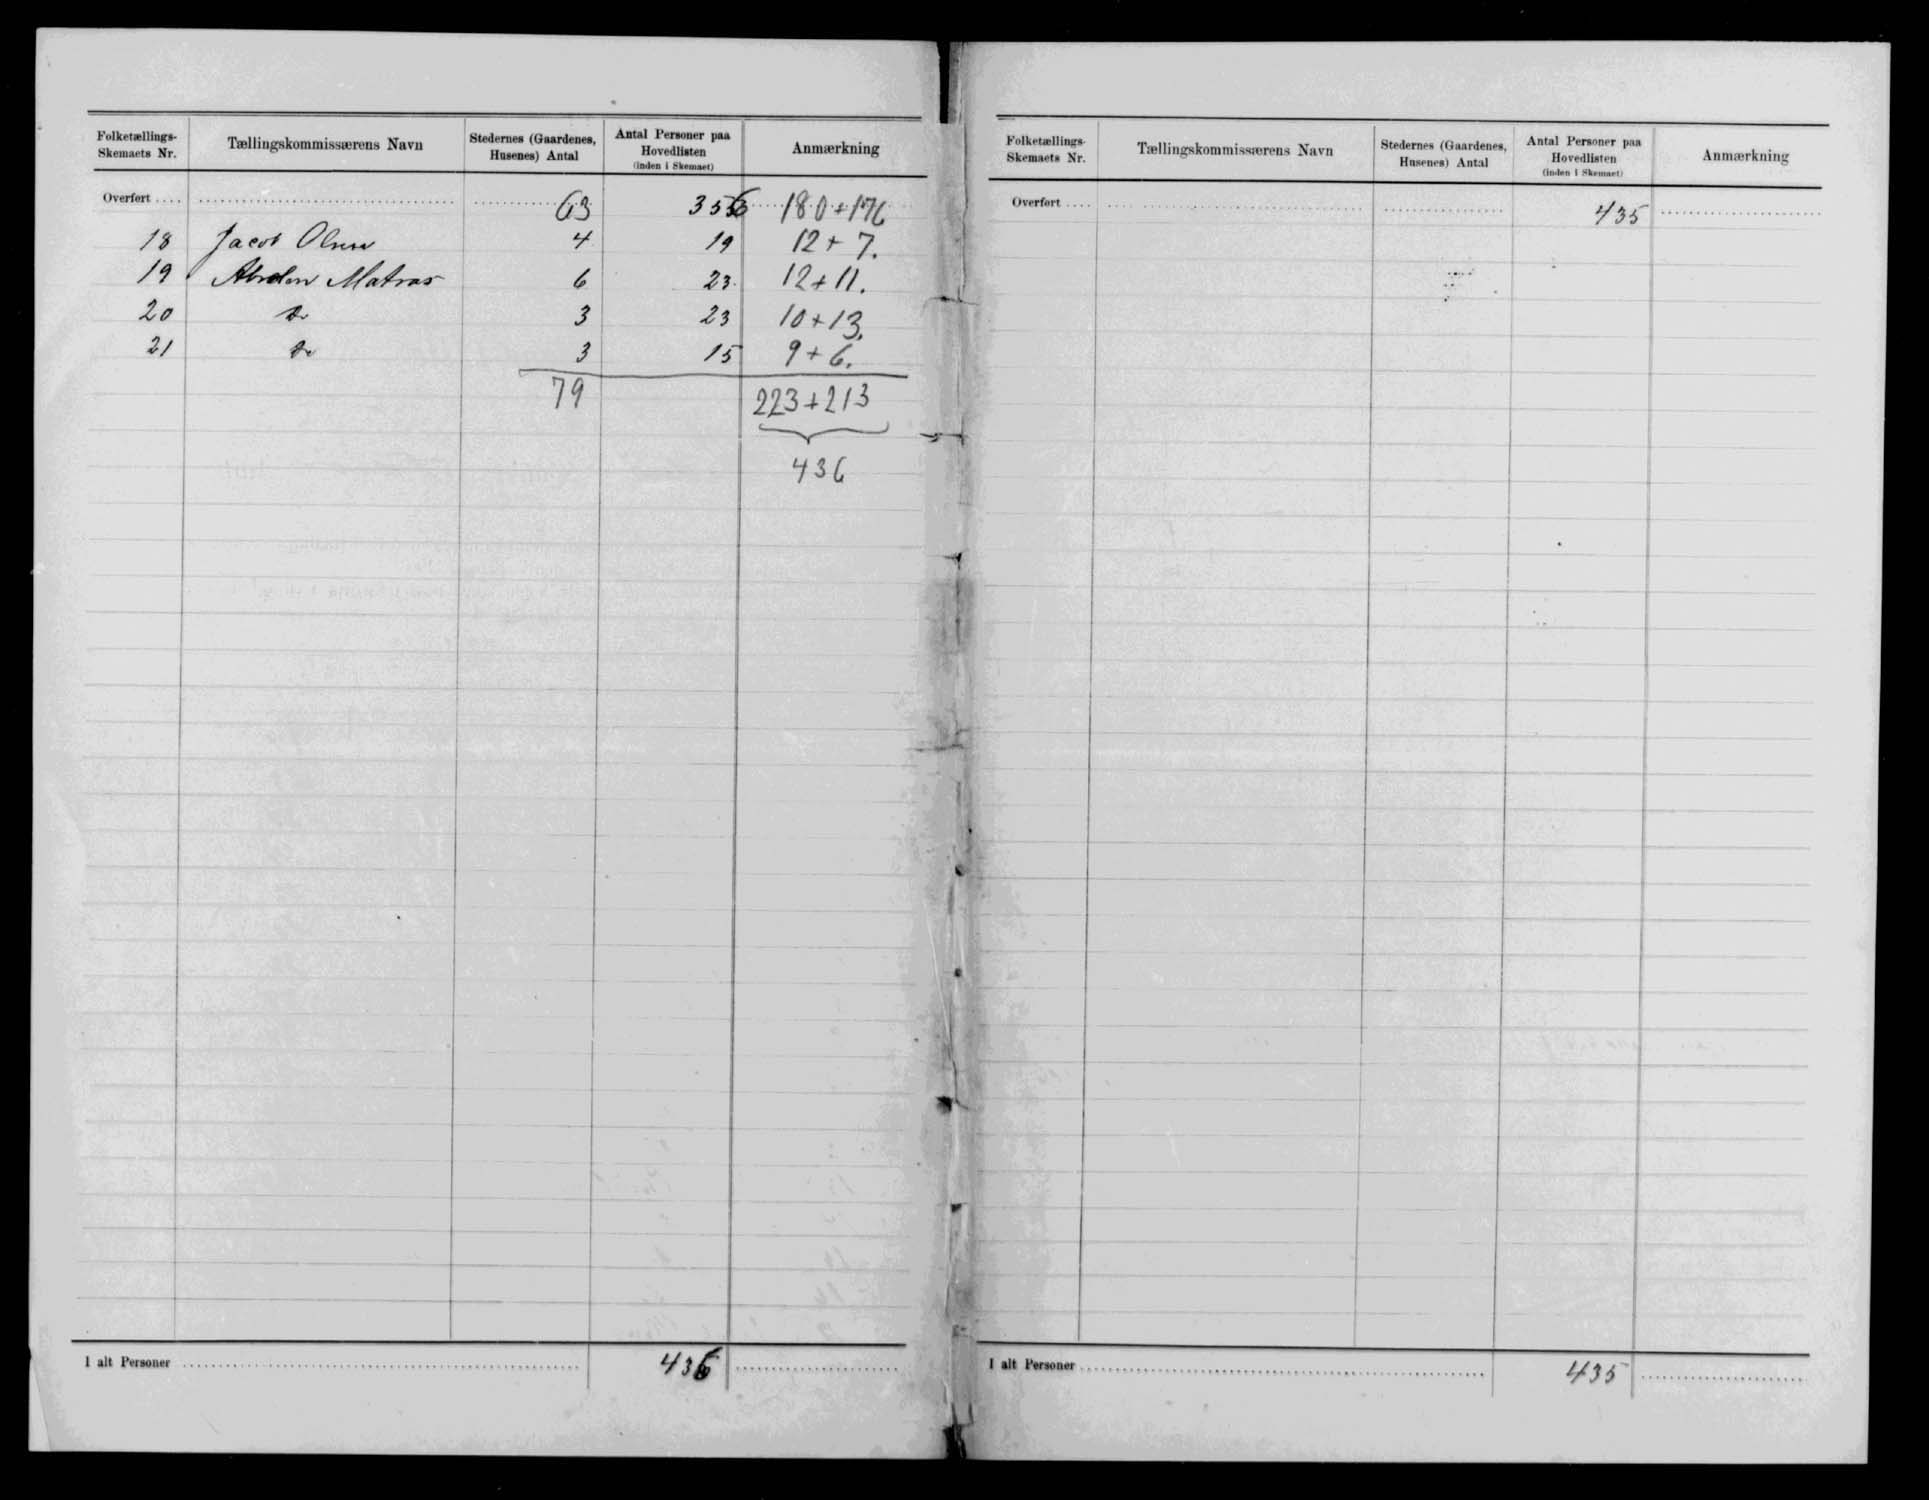 Folketællings-Skemaets Nr. Tællingskommissærens Navn Stedernes (Gaardenes, Husenes) Antal Antal Personer paa Hovedlisten (inden i Skemaet) Anmærkning
Overført .... 63 356 180+176
18 Jacob Olsen 4 19 12+7.
19 Matras 6 23 12+11.
20 Do 3 23 10+13.
21 Do 3 15 9+6.
79 223+213
436
I alt Personer 436
Folketællings-Skemaets Nr. Tællingskommissærens Navn Stedernes (Gaardenes, Husenes) Antal Antal Personer paa Hovedlisten (inden i Skemaet) Anmærkning
Overført .... 435
I alt Personer 435